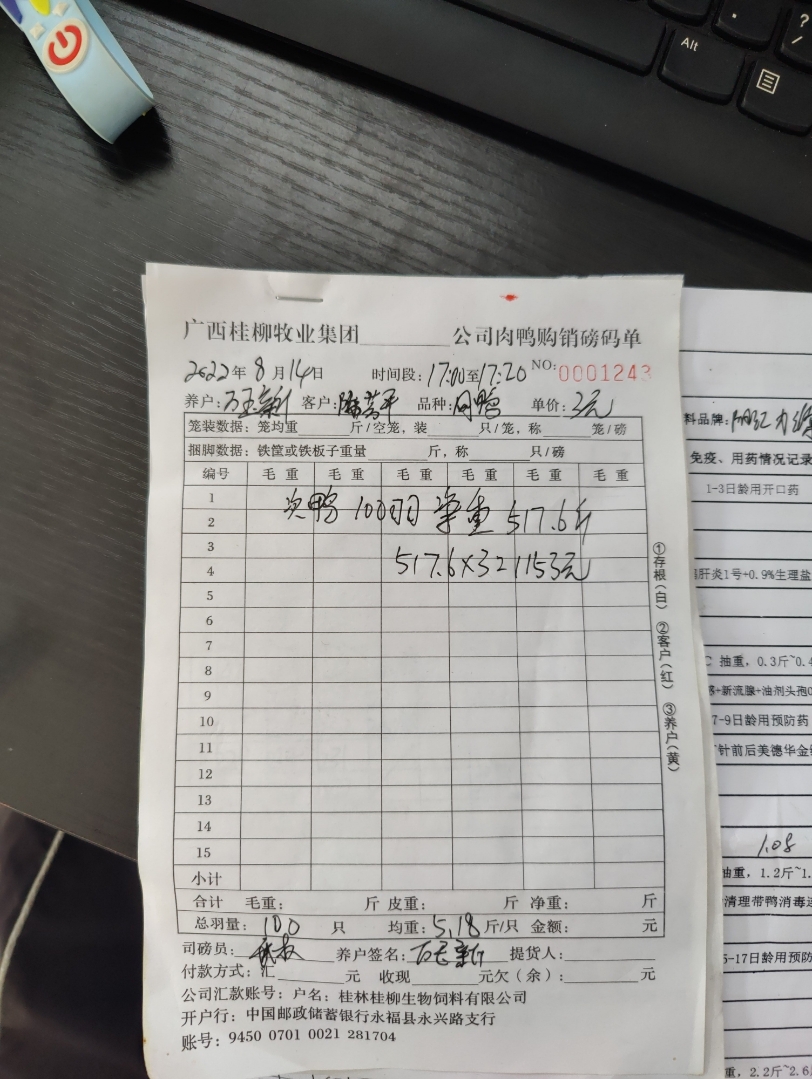 Alt
?
/
广西桂柳牧业集团________公司肉鸭购销磅码单
2022年 8 月 14日 时间段: 17:00至17:20 NO: 0001243
养户: 万玉新 客户: 品种: 肉鸭 单价: 3元
笼装数据: 笼均重________斤/空笼, 装________只/笼, 称________笼/磅
捆脚数据: 铁筐或铁板子重量________斤, 称________只/磅
编号 毛 重 毛 重 毛 重 毛 重 毛 重 毛 重
1
次鸭 100羽 净重 517.6斤
2
3
517.6×3=1153元
4
5
6
7
8
9
10
11
12
13
14
15
小计
合计 毛重: 斤 皮重: 斤 净重: 斤
总羽量: 100 只 均重: 5.18 斤/只 金额: 元
司磅员: 养户签名: 万玉新 提货人:
付款方式: 汇________元 收现________元欠(余):________元
公司汇款账号: 户名: 桂林桂柳生物饲料有限公司
开户行: 中国邮政储蓄银行永福县永兴路支行
账号: 9450 0701 0021 281704
①存根(白) ②客户(红) ③养户(黄)
料品牌:
免疫、用药情况记录
1-3日龄用开口药
肝炎1号+0.9%生理盐
C 抽重, 0.3斤~0.4
+新流腺+油剂头孢
7-9日龄用预防药
针前后美德华金
1.08
抽重, 1.2斤~1.
清理带鸭消毒
5-17日龄用预防
重, 2.2斤~2.6